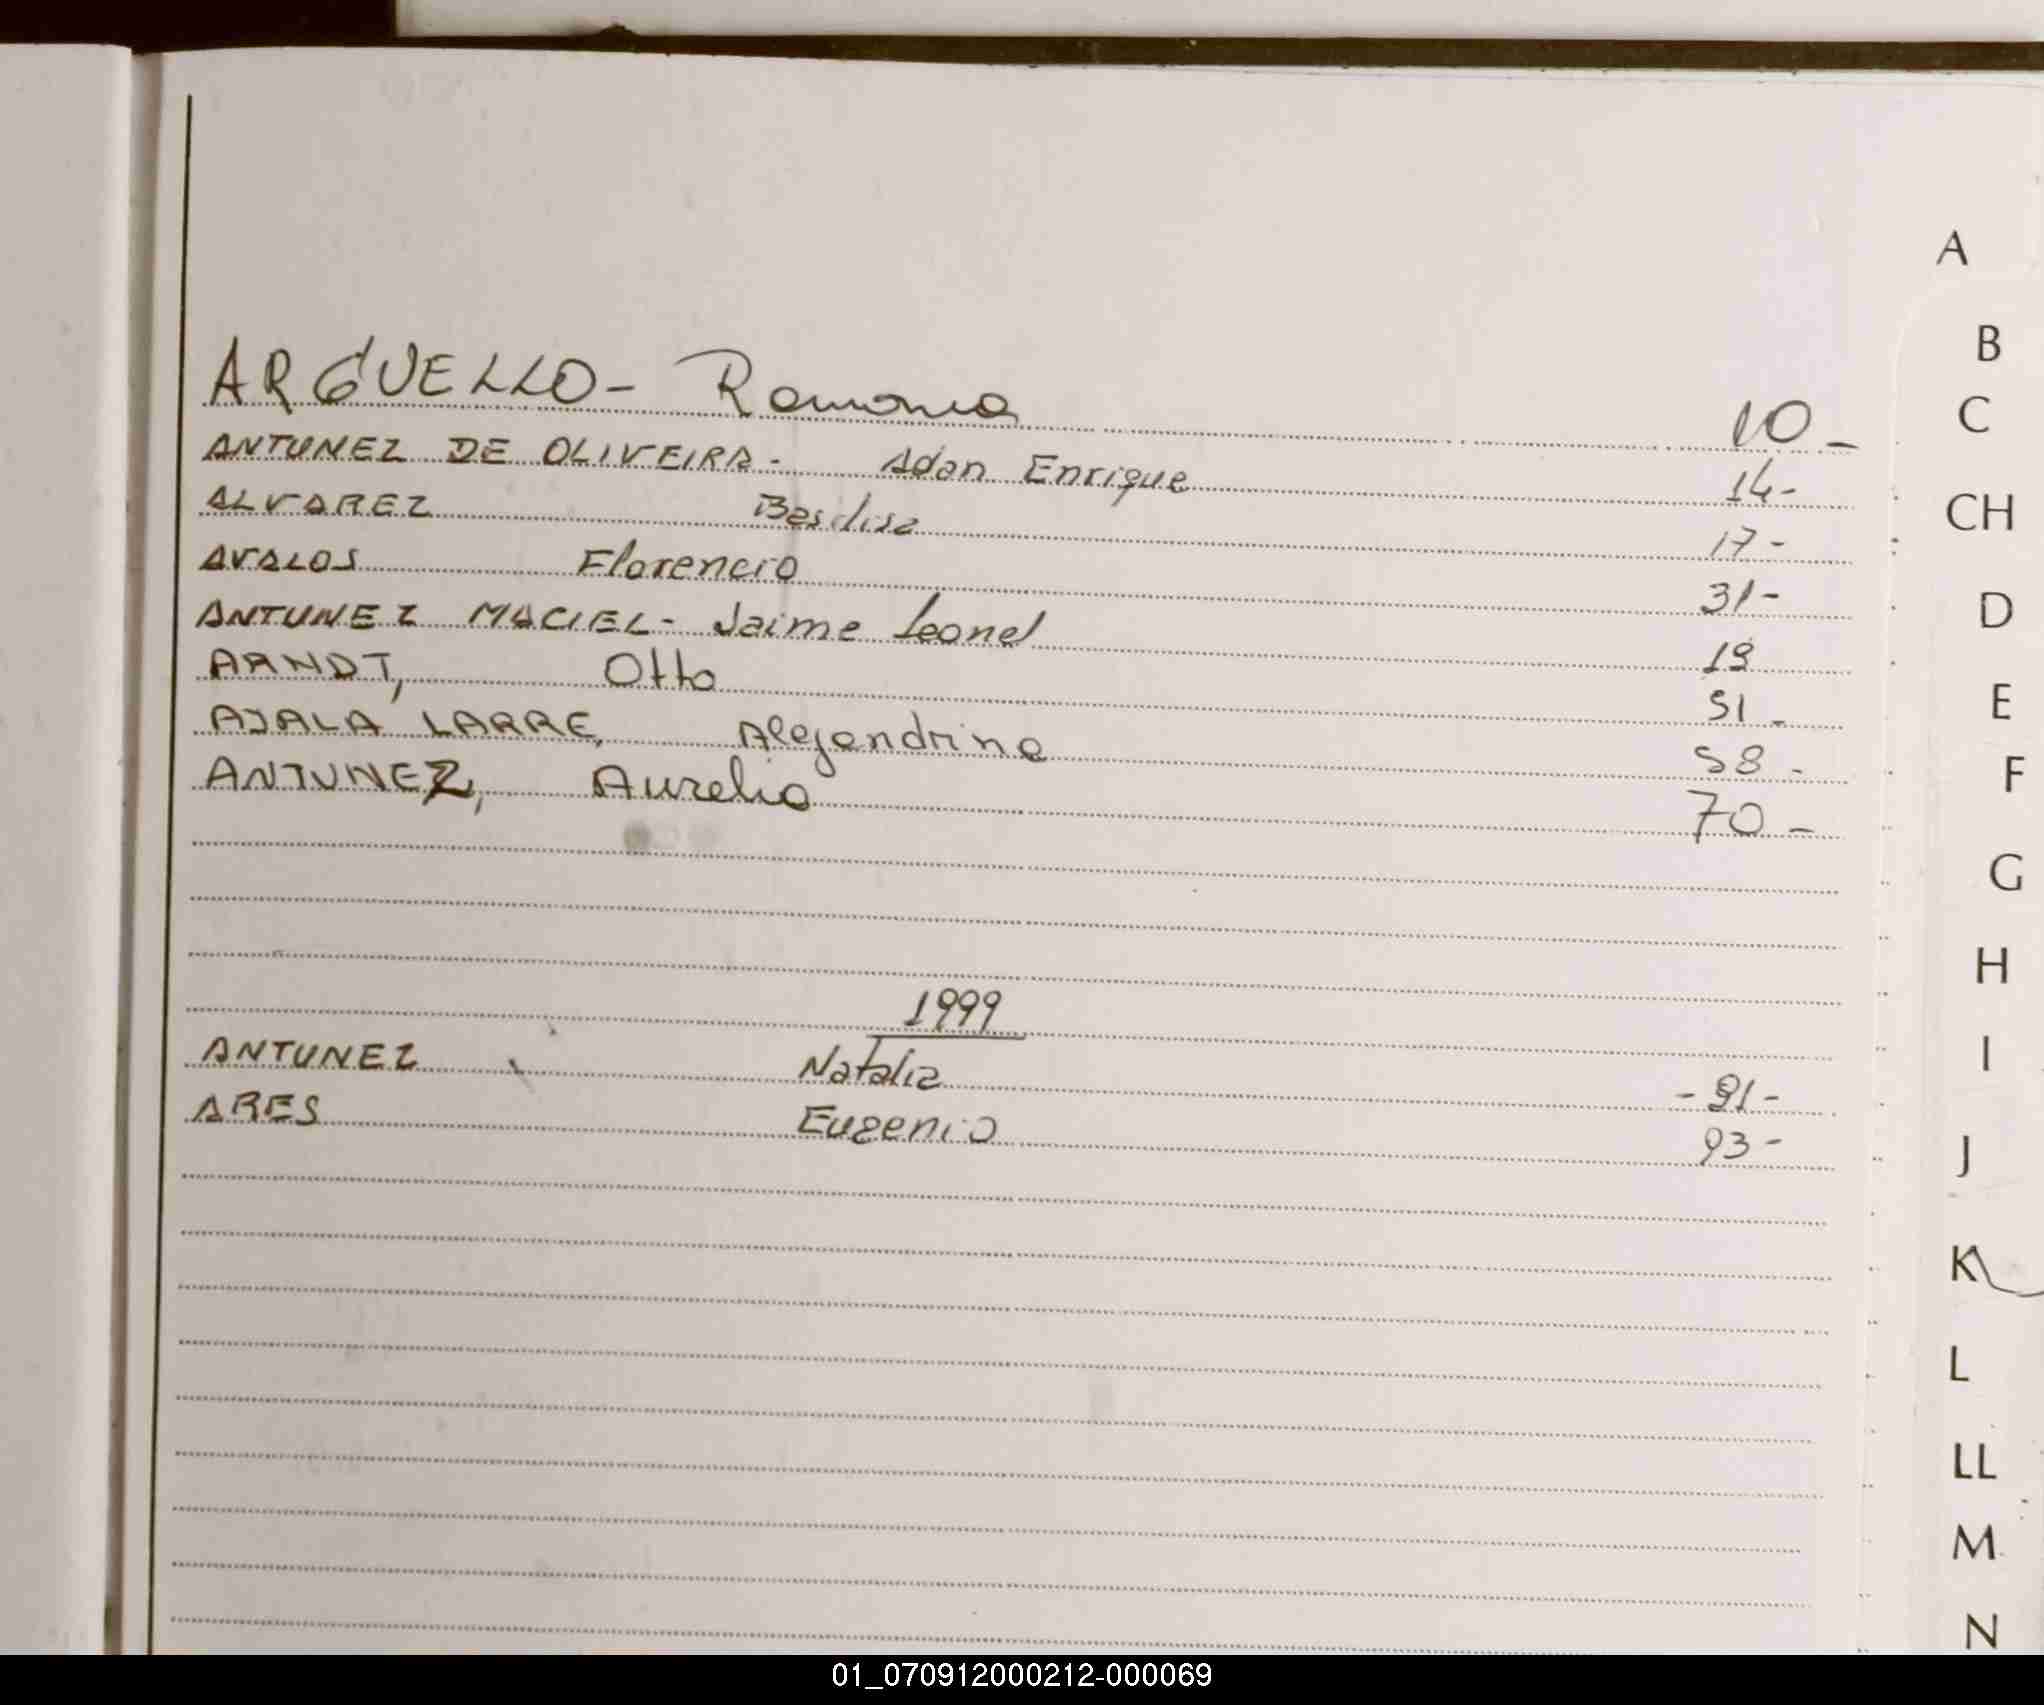 ARGÜELLO - Ramona 10 -
ANTUNEZ DE OLIVEIRA - Adan Enrique 14 -
ALVAREZ Basilisa 17 -
AVALOS Florencio 31 -
ANTUNEZ MACIEL - Jaime Leonel 19
ARNDT, Otto 51 -
AJALA LARRE, Alejandrina 58 -
ANTUNEZ, Aurelio 70 -
1999
ANTUNEZ Natalia - 91 -
ARES Eugenio 93 -
A
B
C
CH
D
E
F
G
H
I
J
K
L
LL
M
N
01_070912000212-000069